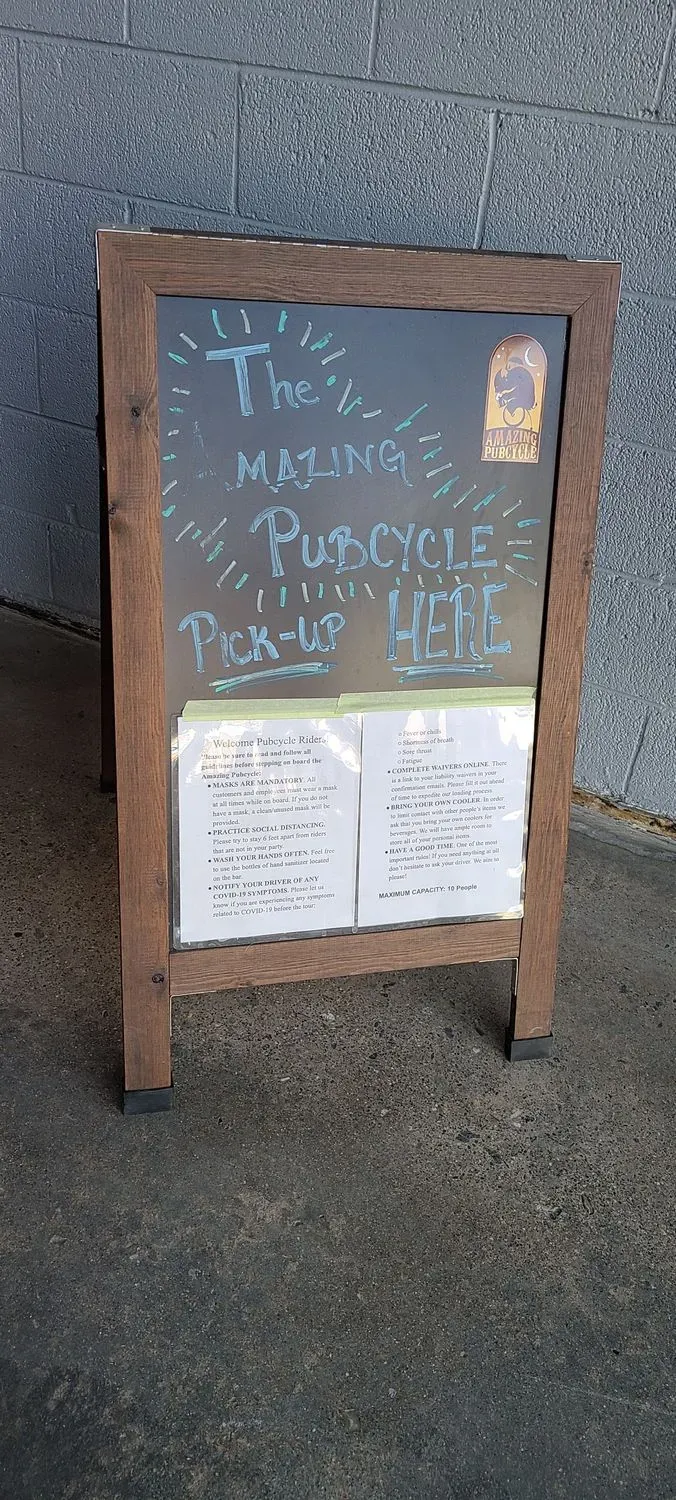 The
AMAZING
PUBCYCLE
PICK-UP HERE
AMAZING
PUBCYCLE
Welcome Pubcycle Riders!
Please be sure to read and follow all
guidelines before stepping on board the
Amazing Pubcycle:
• MASKS ARE MANDATORY. All
customers and employees must wear a mask
at all times while on board. If you do not
have a mask, a clean/unused mask will be
provided.
• PRACTICE SOCIAL DISTANCING.
Please try to stay 6 feet apart from riders
that are not in your party.
• WASH YOUR HANDS OFTEN. Feel free
to use the bottles of hand sanitizer located
on the bar.
• NOTIFY YOUR DRIVER OF ANY
COVID-19 SYMPTOMS. Please let us
know if you are experiencing any symptoms
related to COVID-19 before the tour:
o Fever or chills
o Shortness of breath
o Sore throat
o Fatigue
• COMPLETE WAIVERS ONLINE. There
is a link to your liability waivers in your
confirmation emails. Please fill it out ahead
of time to expedite our loading process.
• BRING YOUR OWN COOLER. In order
to limit contact with other people's items we
ask that you bring your own coolers for
beverages. We will have ample room to
store all of your personal items.
• HAVE A GOOD TIME. One of the most
important rules! If you need anything at all
don't hesitate to ask your driver. We aim to
please!
MAXIMUM CAPACITY: 10 People